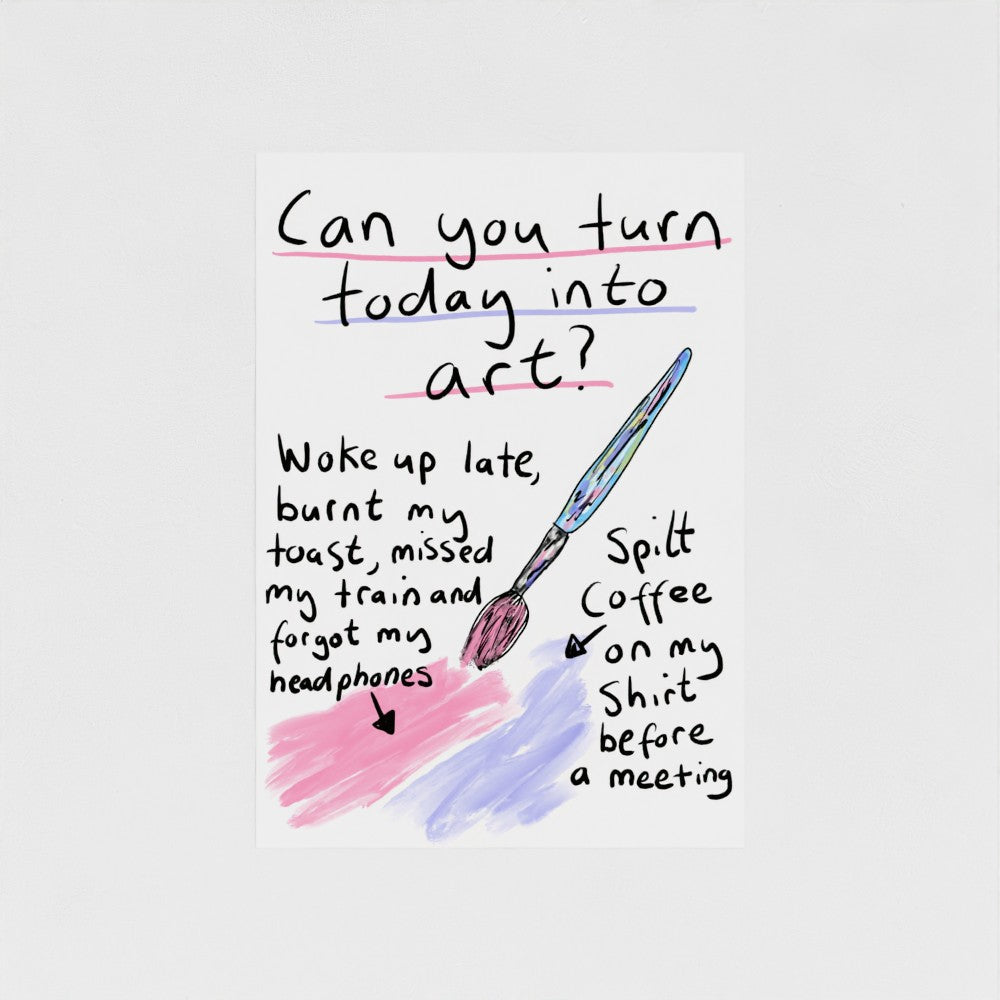 Can you turn
today into
art?
Woke up late,
burnt my
toast, missed
my train and
forgot my
headphones
Spilt
Coffee
on my
Shirt
before
a meeting